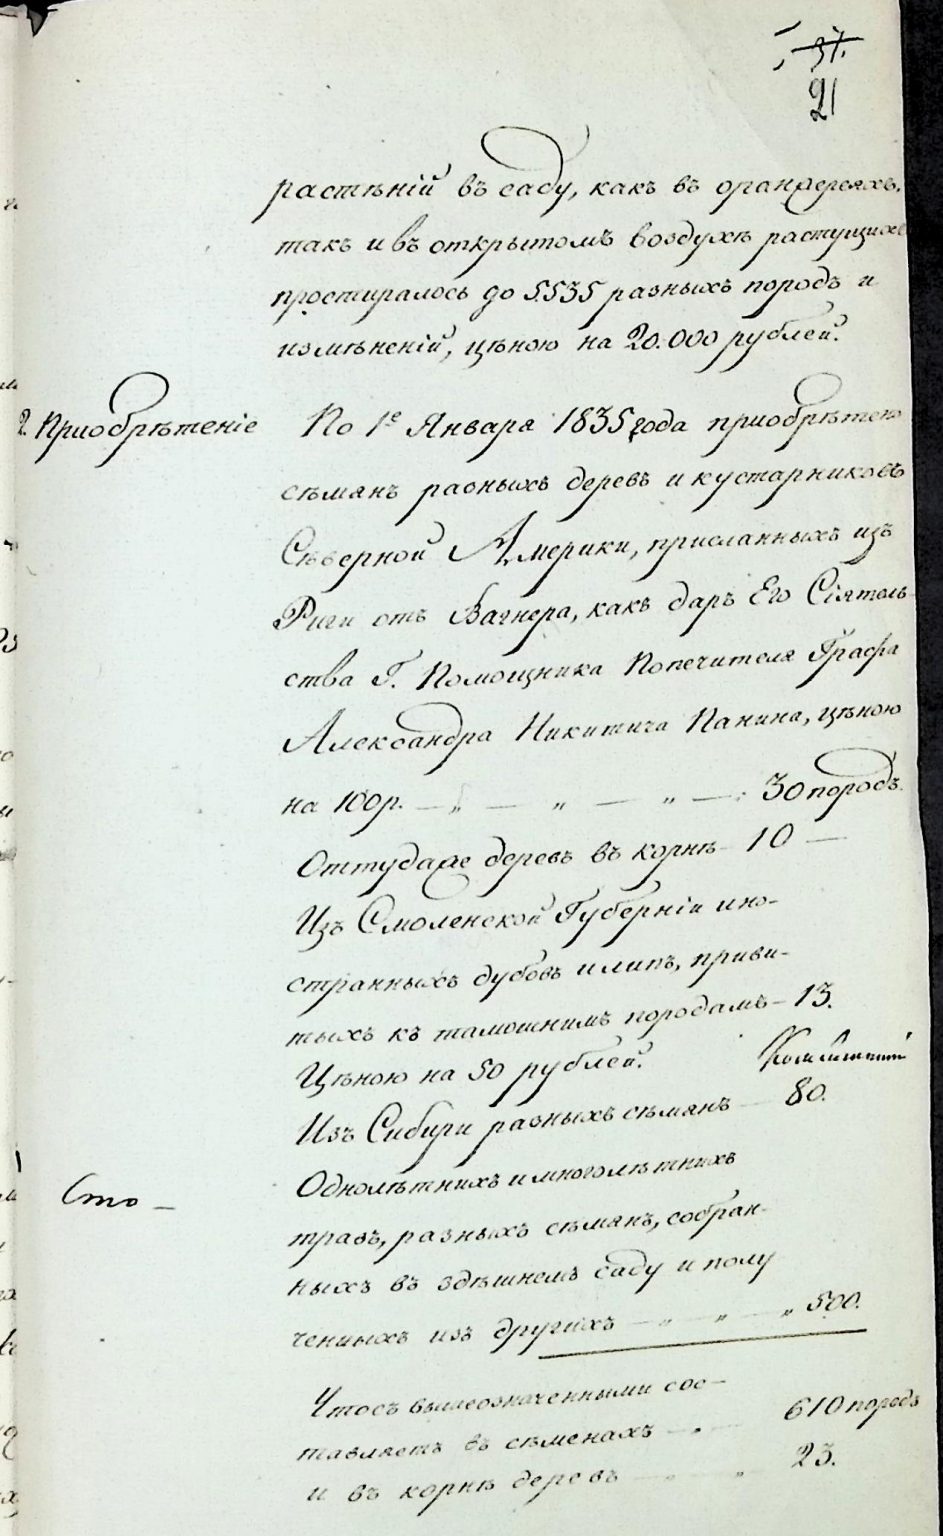 37.
21
растѣній въ саду, какъ въ оранжереяхъ,
такъ и въ открытомъ воздухѣ растущихъ
простиралось до 5535 разныхъ породъ и
измѣненій, цѣною на 20.000 рублей.
2. Приобрѣтеніе
По 1е Января 1835 года приобрѣтено
сѣмянъ разныхъ деревъ и кустарниковъ
Сѣверной Америки, присланныхъ изъ
Риги отъ Вагнера, какъ даръ Его Сіятель-
ства Г. Помощника Попечителя Графа
Александра Никитича Панина, цѣною
на 100 р. — „ — „ — „ — : 30 породъ.
Оттудаже деревъ въ корнѣ — 10 —
Изъ Смоленской Губерніи ино-
странныхъ дубовъ и липъ, приви-
тыхъ къ тамошнимъ породамъ — 13.
Цѣною на 50 рублей.
Изъ Сибири разныхъ сѣмянъ — 80.
Однолѣтнихъ и многолѣтнихъ
Сто —
травъ, разныхъ сѣмянъ, собран-
ныхъ въ здѣшнемъ саду и полу
ченныхъ изъ другихъ — „ — „ — „ 500.
Чтосъ вышеозначенными сос-
тавляетъ въ сѣменахъ — „ — 610 породъ
и въ корнѣ деревъ — „ — „ 23.